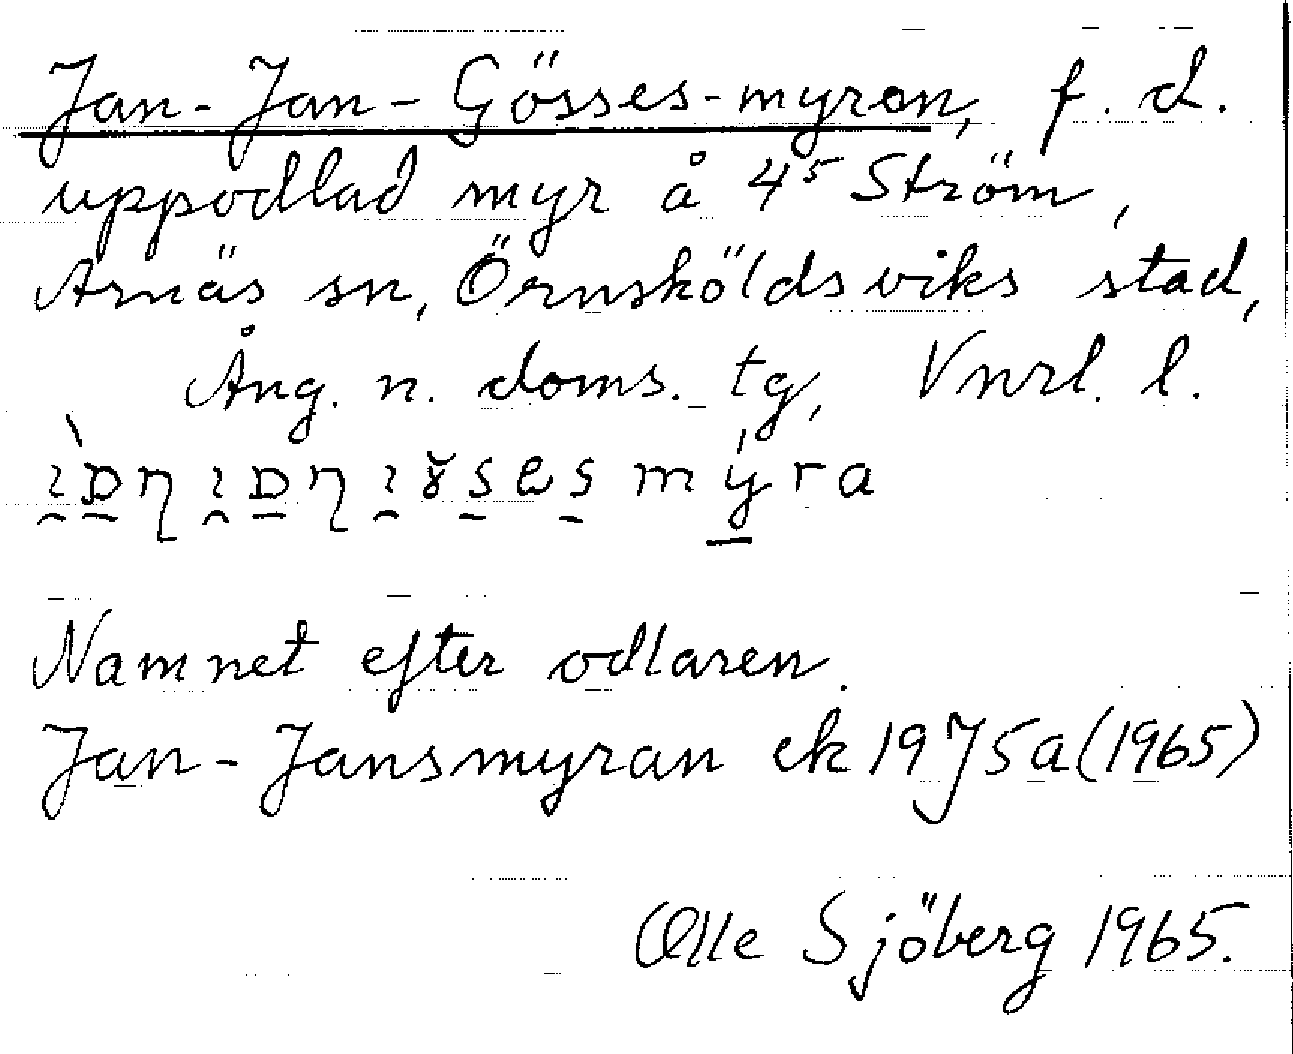 Jan-Jan-Gösses-myran, f. d.
uppodlad myr å 4⁵ Ström,
Arnäs sn, Örnsköldsviks stad,
Ång. n. doms. tg, Vnrl. l.
Namnet efter odlaren.
Jan-Jansmyran ek 19J5a(1965)
Olle Sjöberg 1965.